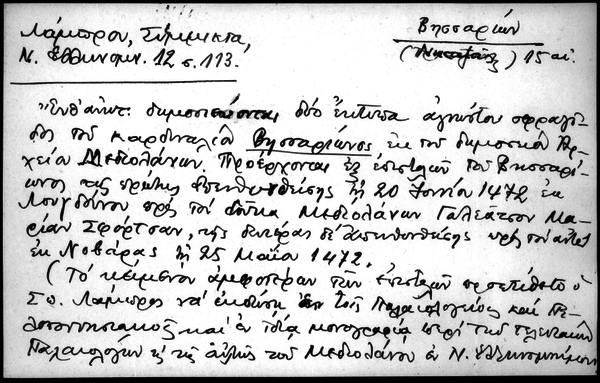 Λάμπρου, Σύμμικτα,
Ν. Ἑλληνομν. 12 σ. 113.
Βησσαρίων
15 αἰ.
"Ἐνθ' ἀνωτ. δημοσιεύονται δύο ἔκτυπα ἀγνώστου σφραγῖ-
δος τοῦ καρδιναλίου Βησσαρίωνος ἐκ τοῦ δημοσίου Ἀρ-
χείου Μεδιολάνων. Προέρχονται ἐξ ἐπιστολῶν τοῦ Βησσαρί-
ωνος τῆς πρώτης ἀπευθυνθείσης τῇ 20 Ἰουνίου 1472 ἐκ
Λουγδούνου πρὸς τὸν δοῦκα Μεδιολάνων Γαλεάτσον Μα-
ρίαν Σφόρτσαν, τῆς δευτέρας δ' ἀπευθυνθείσης πρὸς τὸν αὐτὸν
ἐκ Νοβάρας τῇ 25 Μαΐου 1472.
(Τὸ κείμενον ἀμφοτέρων τῶν ἐπιστολῶν προετίθετο ὁ
Σπ. Λάμπρος νὰ ἐκδώσῃ ἐν τοῖς Παλαιολογείοις καὶ Πε-
λοποννησιακοῖς καὶ ἐν ἰδίᾳ μονογραφίᾳ περὶ τῶν τελευταίων
Παλαιολόγων ἐν τῇ αὐλῇ τοῦ Μεδιολάνου ἐν Ν. Ἑλληνομνήμονι